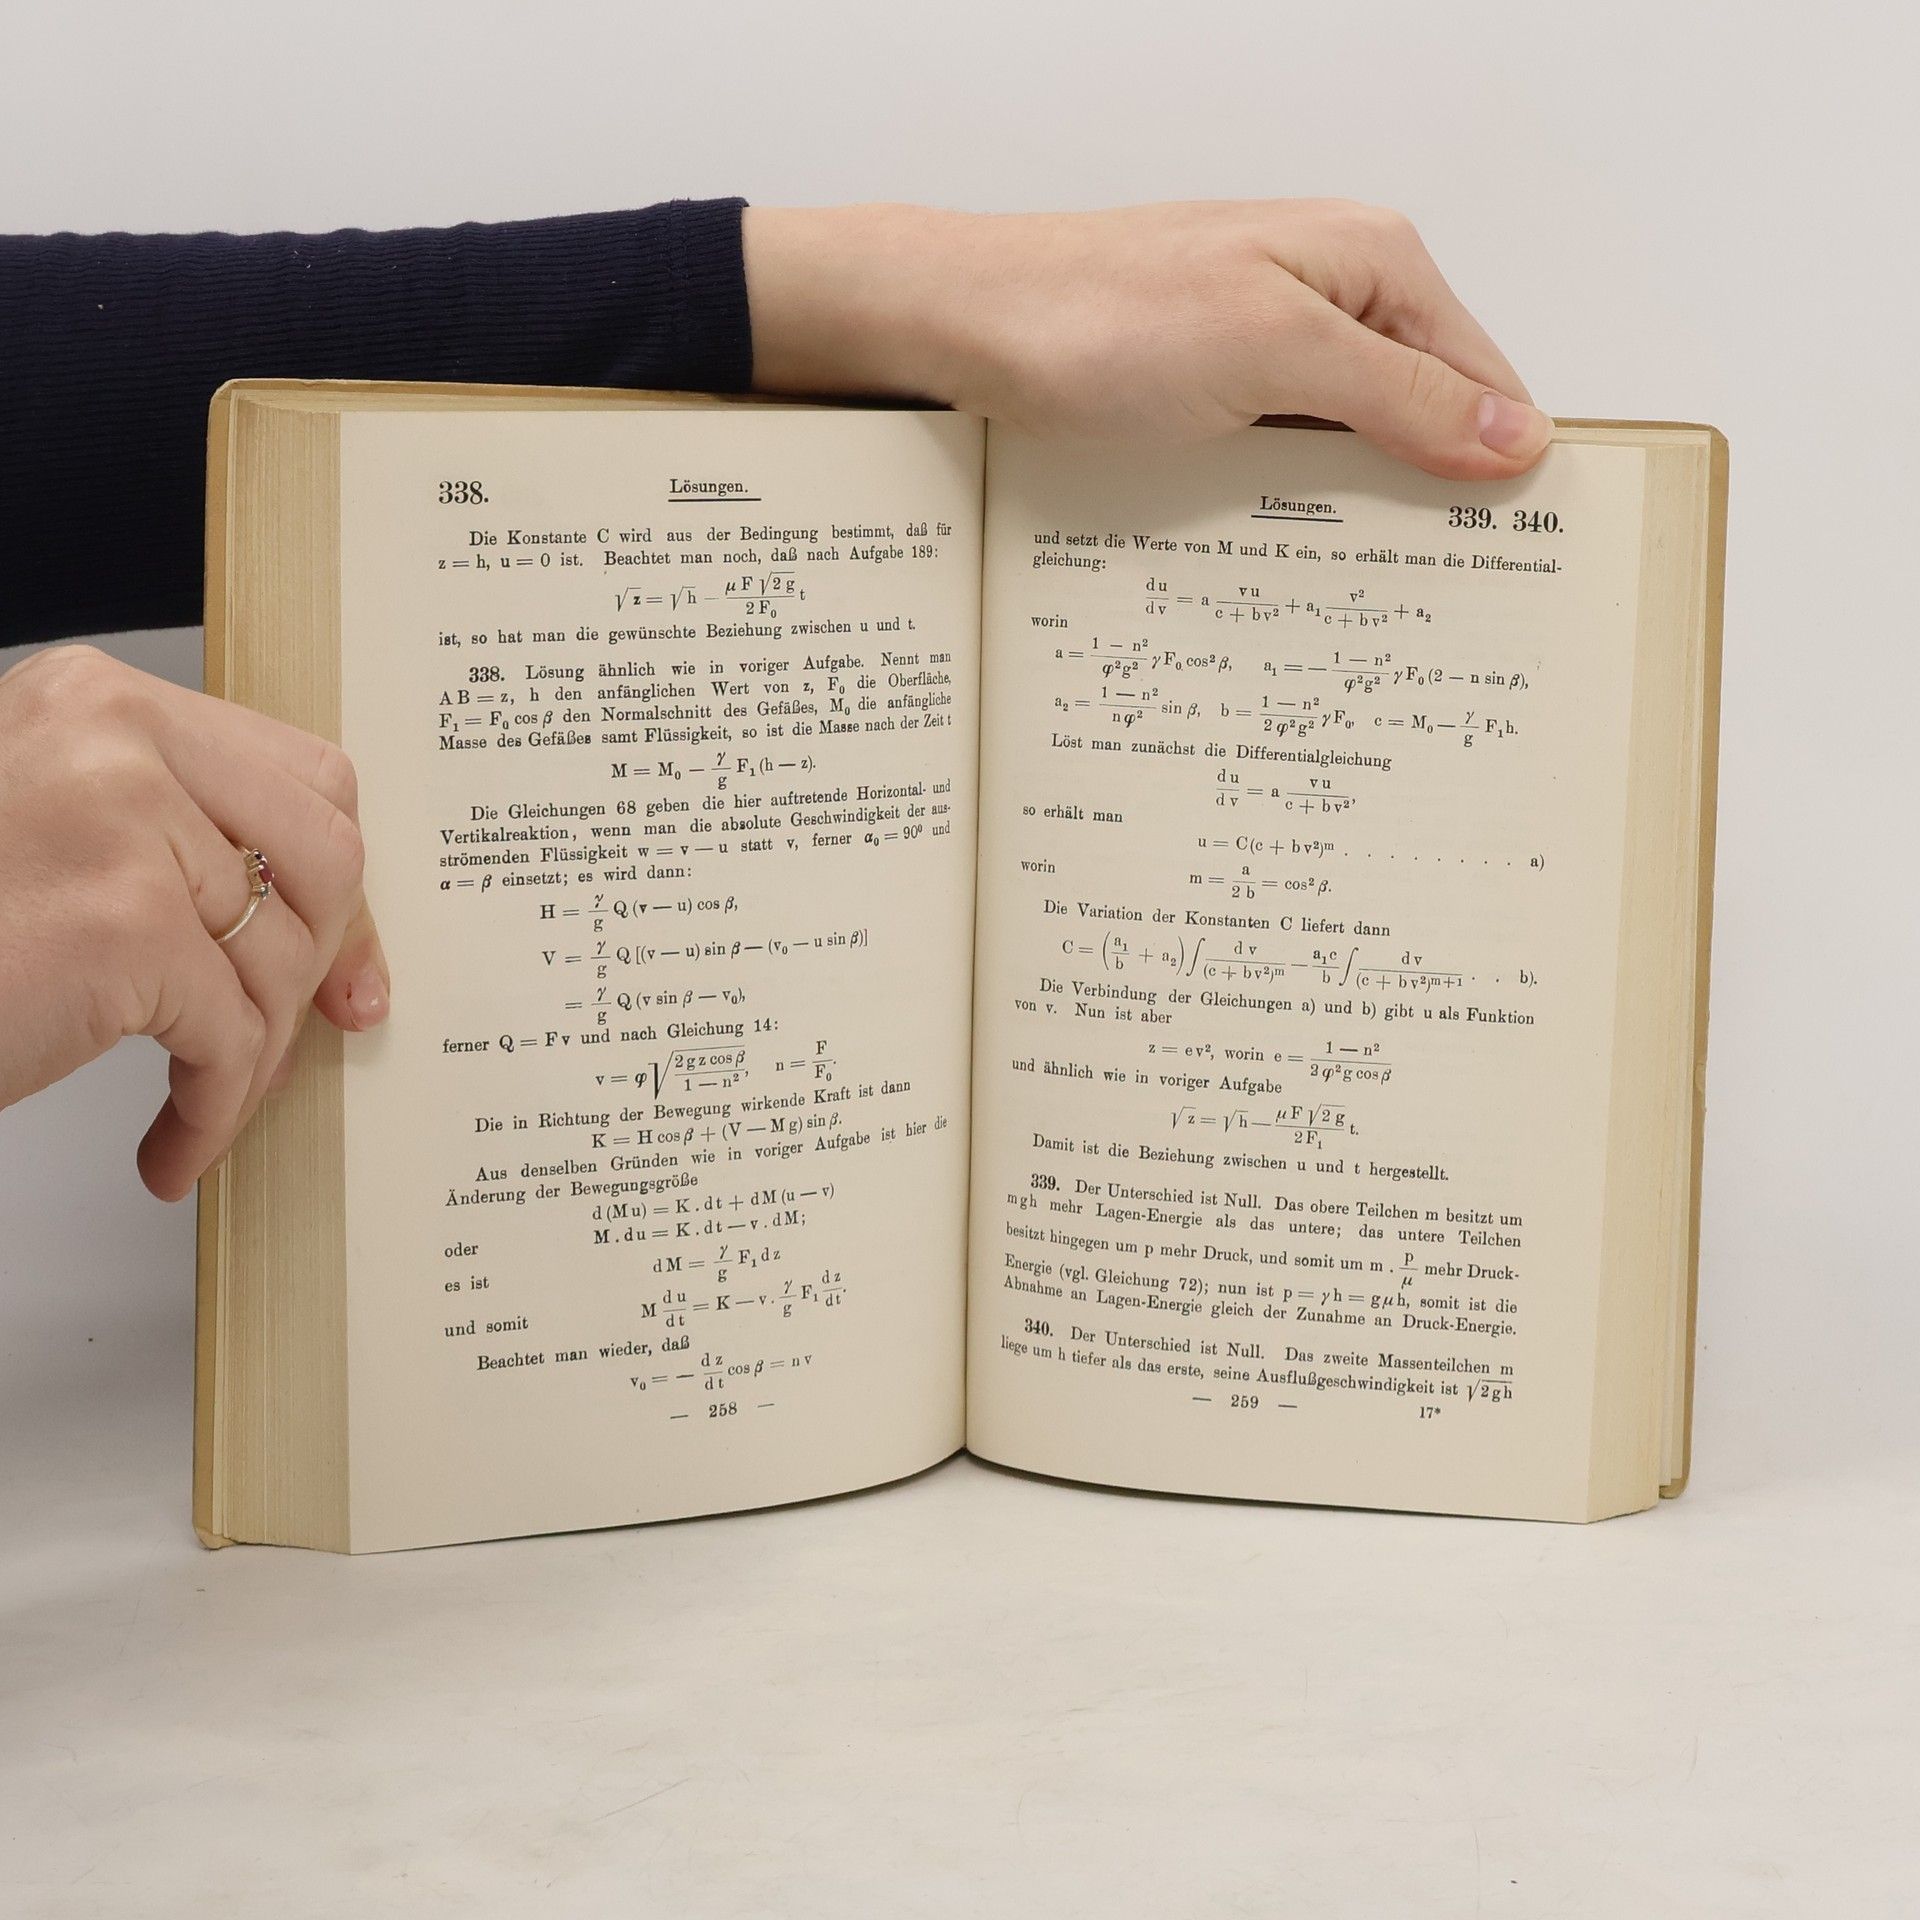 338. Lösungen.
Die Konstante C wird aus der Bedingung bestimmt, daß für
z = h, u = 0 ist. Beachtet man noch, daß nach Aufgabe 189:
√z = √h − (μ F √2 g)/(2 F₀) t
ist, so hat man die gewünschte Beziehung zwischen u und t.
338. Lösung ähnlich wie in voriger Aufgabe. Nennt man
A B = z, h den anfänglichen Wert von z, F₀ die Oberfläche,
F₁ = F₀ cos β den Normalschnitt des Gefäßes, M₀ die anfängliche
Masse des Gefäßes samt Flüssigkeit, so ist die Masse nach der Zeit t
M = M₀ − γ/g F₁ (h − z).
Die Gleichungen 68 geben die hier auftretende Horizontal- und
Vertikalreaktion, wenn man die absolute Geschwindigkeit der aus-
strömenden Flüssigkeit w = v − u statt v, ferner α₀ = 90⁰ und
α = β einsetzt; es wird dann:
H = γ/g Q (v − u) cos β,
V = γ/g Q [(v − u) sin β − (v₀ − u sin β)]
= γ/g Q (v sin β − v₀),
ferner Q = F v und nach Gleichung 14:
v = φ √((2 g z cos β)/(1 − n²)), n = F/F₀.
Die in Richtung der Bewegung wirkende Kraft ist dann
K = H cos β + (V − M g) sin β.
Aus denselben Gründen wie in voriger Aufgabe ist hier die
Änderung der Bewegungsgröße
d (M u) = K . dt + dM (u − v)
oder M . du = K . dt − v . dM;
es ist dM = γ/g F₁ dz
und somit M du/dt = K − v . γ/g F₁ dz/dt.
Beachtet man wieder, daß
v₀ = − dz/dt cos β = n v
— 258 —
Lösungen. 339. 340.
und setzt die Werte von M und K ein, so erhält man die Differential-
gleichung:
du/dv = a (v u)/(c + b v²) + a₁ v²/(c + b v²) + a₂
worin
a = (1 − n²)/(φ²g²) γ F₀ cos² β, a₁ = − (1 − n²)/(φ²g²) γ F₀ (2 − n sin β),
a₂ = (1 − n²)/(n φ²) sin β, b = (1 − n²)/(2 φ²g²) γ F₀, c = M₀ − γ/g F₁h.
Löst man zunächst die Differentialgleichung
du/dv = a (v u)/(c + b v²),
so erhält man
u = C (c + b v²)ᵐ . . . . . . . . . a)
worin m = a/(2 b) = cos² β.
Die Variation der Konstanten C liefert dann
C = (a₁/b + a₂) ∫ dv/(c + b v²)ᵐ − (a₁c)/b ∫ dv/(c + b v²)ᵐ⁺¹ . . b).
Die Verbindung der Gleichungen a) und b) gibt u als Funktion
von v. Nun ist aber
z = e v², worin e = (1 − n²)/(2 φ²g cos β)
und ähnlich wie in voriger Aufgabe
√z = √h − (μ F √2 g)/(2 F₁) t.
Damit ist die Beziehung zwischen u und t hergestellt.
339. Der Unterschied ist Null. Das obere Teilchen m besitzt um
mgh mehr Lagen-Energie als das untere; das untere Teilchen
besitzt hingegen um p mehr Druck, und somit um m . p/μ mehr Druck-
Energie (vgl. Gleichung 72); nun ist p = γ h = g μ h, somit ist die
Abnahme an Lagen-Energie gleich der Zunahme an Druck-Energie.
340. Der Unterschied ist Null. Das zweite Massenteilchen m
liege um h tiefer als das erste, seine Ausflußgeschwindigkeit ist √2 g h
— 259 — 17*